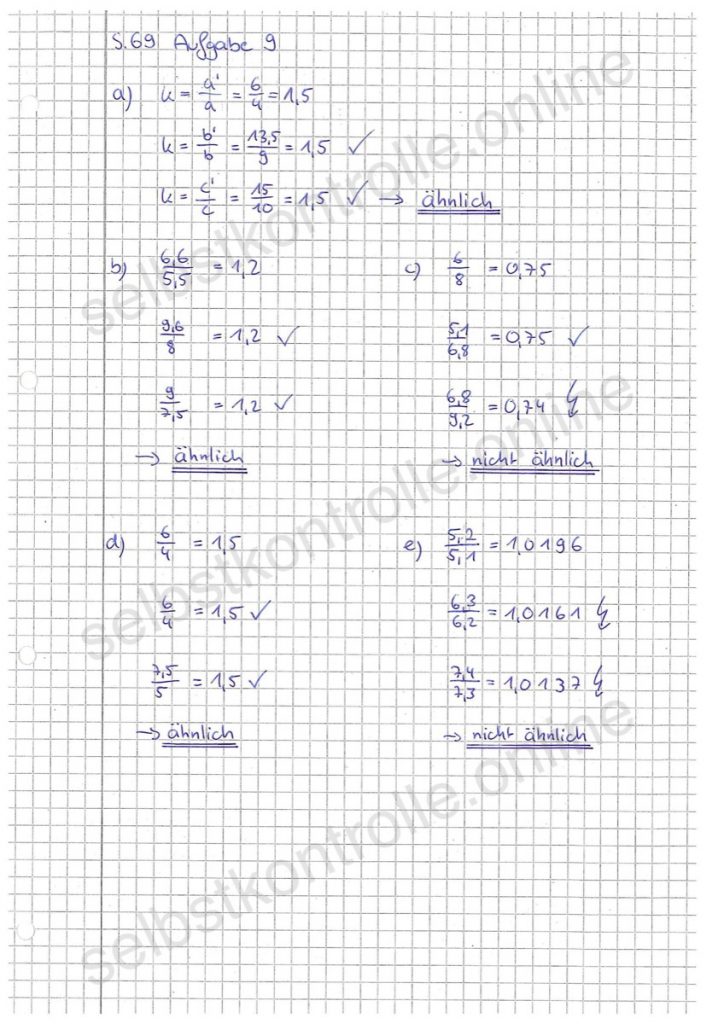 S.69 Aufgabe 9
a) k = a'/a = 6/4 = 1,5
k = b'/b = 13,5/9 = 1,5 ✓
k = c'/c = 15/10 = 1,5 ✓ → ähnlich
b) 6,6/5,5 = 1,2
9,6/8 = 1,2 ✓
9/7,5 = 1,2 ✓
→ ähnlich
c) 6/8 = 0,75
5,1/6,8 = 0,75 ✓
6,8/9,2 = 0,74 ↯
→ nicht ähnlich
d) 6/4 = 1,5
6/4 = 1,5 ✓
7,5/5 = 1,5 ✓
→ ähnlich
e) 5,2/5,1 = 1,0196
6,3/6,2 = 1,0161 ↯
7,4/7,3 = 1,0137 ↯
→ nicht ähnlich
selbstkontrolle.online
selbstkontrolle.online
selbstkontrolle.online